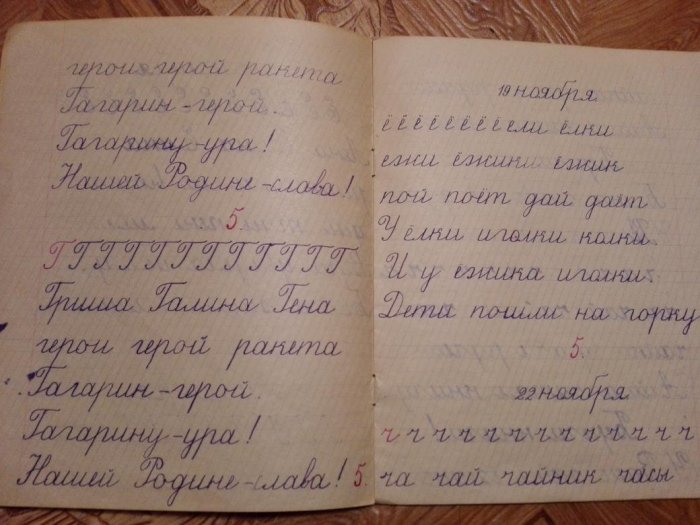 герои герой ракета
Гагарин-герой.
Гагарину-ура!
Нашей Родине-слава!
5
Г Г Г Г Г Г Г Г Г Г Г Г
Гриша Галина Гена
герои герой ракета
Гагарин-герой.
Гагарину-ура!
Нашей Родине-слава! 5.
19 ноября
ё ё ё ё ё ё ё ё ели ёлки
ежи ёжики ёжик
пой поёт дай даёт
У ёлки иголки колки.
И у ёжика иголки.
Дети пошли на горку
5.
22 ноября
ч ч ч ч ч ч ч ч ч ч ч ч ч
ча чай чайник часы